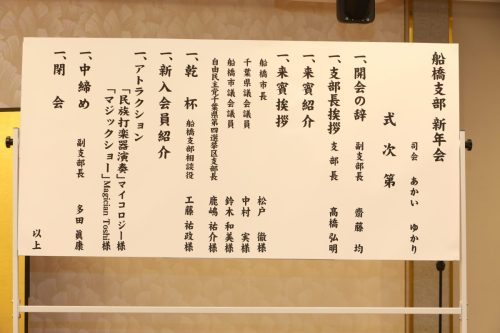 船橋支部 新年会
司会 あかい ゆかり
式次第
一、開会の辞 副支部長 齋藤 均
一、支部長挨拶 支部長 高橋 弘明
一、来賓紹介
一、来賓挨拶
船橋市長 松戸 徹様
千葉県議会議員 中村 実様
船橋市議会議員 鈴木 和美様
自由民主党千葉県第四選挙区支部長 鹿嶋 祐介様
一、乾杯 船橋支部相談役 工藤 祐政様
一、新入会員紹介
一、アトラクション
「民族打楽器演奏」マイコロジー様
「マジックショー」Magician Toshi様
一、中締め 副支部長 多田 眞康
一、閉会
以上